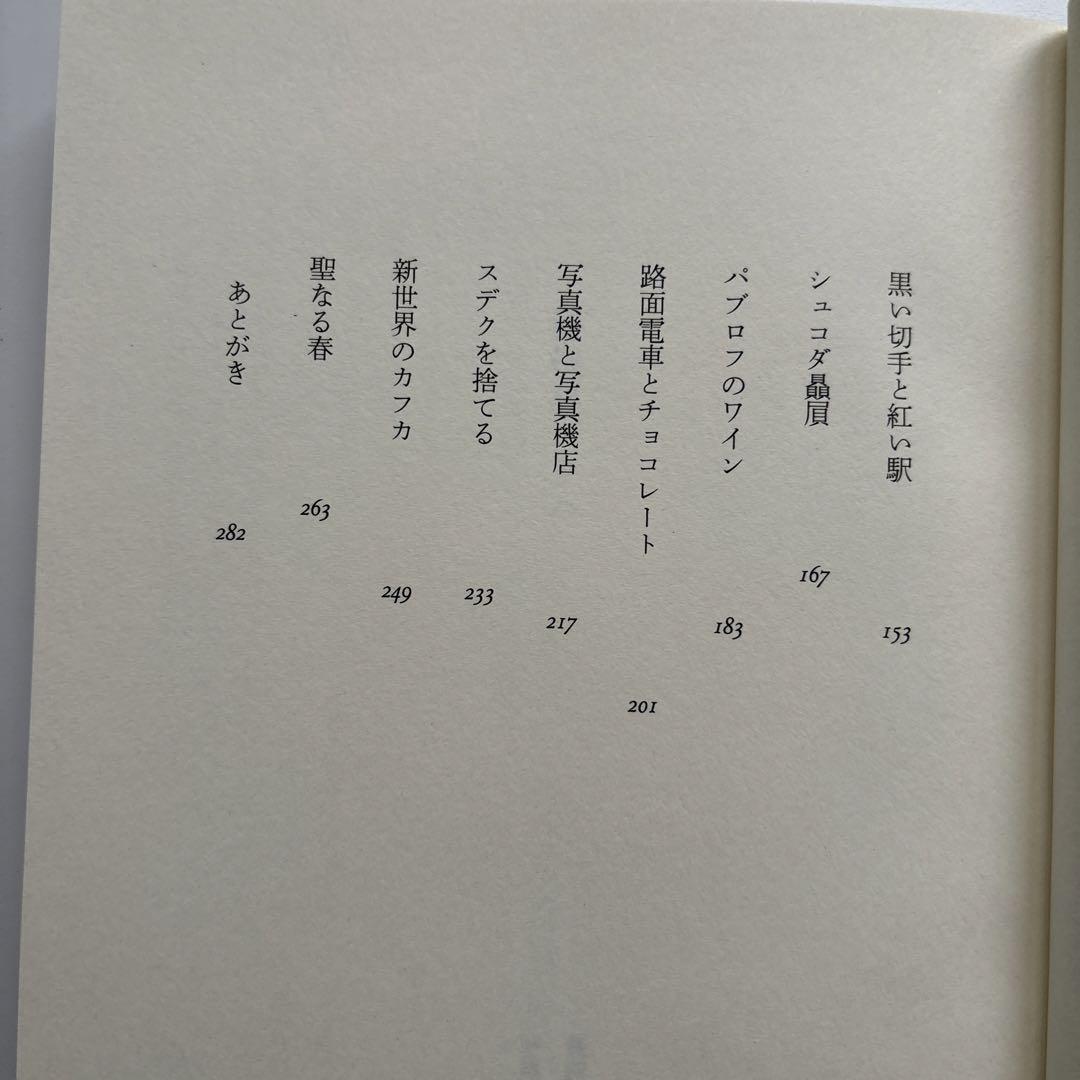 黒い切手と紅い駅 153
シュコダ贔屓 167
パブロフのワイン 183
路面電車とチョコレート 201
写真機と写真機店 217
スデクを捨てる 233
新世界のカフカ 249
聖なる春 263
あとがき 282